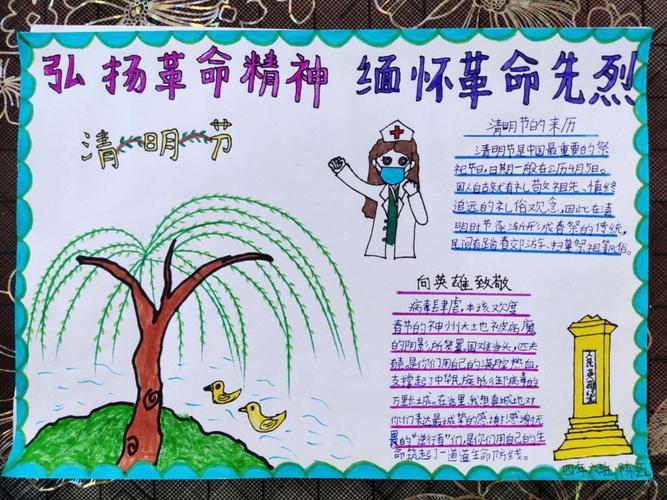 弘扬革命精神 缅怀革命先烈
清明节
清明节的来历
清明节是中国最重要的祭
祀节日,日期一般在公历4月5日。
因人自古就有礼敬祖先、慎终
追远的礼俗观念,因此在清
明时节逐渐形成春祭的传统,
民间有踏春郊游、扫墓祭祖等俗。
向英雄致敬
病毒肆虐,本该欢度
春节的神州大土也被病魔
的阴影所笼罩,国难当头,匹夫
有责,是你们用自己的满腔热血,
支撑起了中华民族抵御病毒的
万里长城。在这里,我想真诚地对
你们表达最诚挚的感谢!感谢无
畏的“逆行者”们,是你们用自己的生
命筑起了一道道生命防线。
人民英雄
四年六班